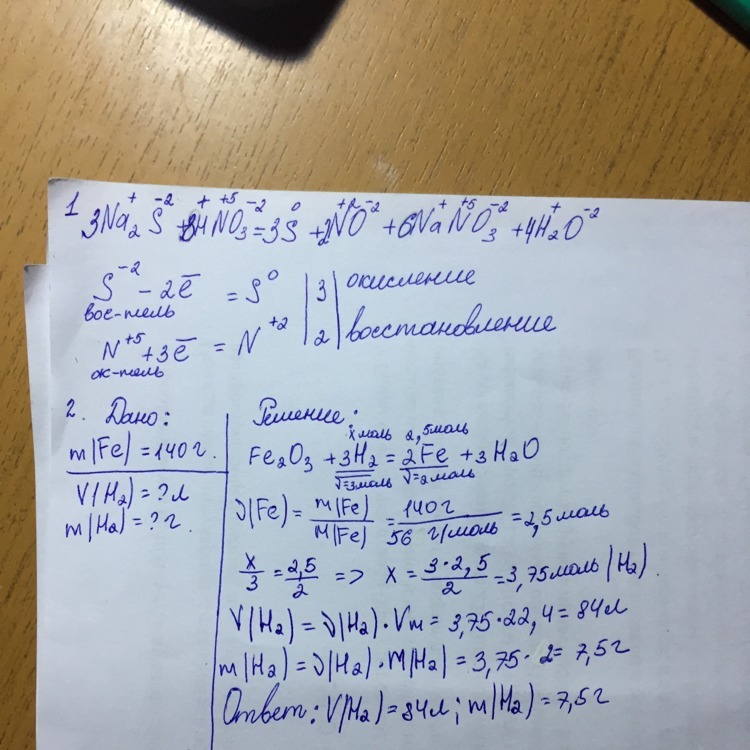 1 3Na₂⁺S⁻² + 8H⁺N⁺⁵O₃⁻² = 3S⁰ + 2N⁺²O⁻² + 6Na⁺N⁺⁵O₃⁻² + 4H₂⁺O⁻²
S⁻² - 2ē = S⁰ | 3 | окисление
вос-тель
N⁺⁵ + 3ē = N⁺² | 2 | восстановление
ок-тель
2. Дано:
m(Fe) = 140 г.
V(H₂) = ? л
m(H₂) = ? г.
Решение:
x моль 2,5 моль
Fe₂O₃ + 3H₂ = 2Fe + 3H₂O
ν=3 моль ν=2 моль
ν(Fe) = m(Fe)/M(Fe) = 140 г/56 г/моль = 2,5 моль
x/3 = 2,5/2 => x = 3·2,5/2 = 3,75 моль (H₂).
V(H₂) = ν(H₂)·Vm = 3,75·22,4 = 84 л
m(H₂) = ν(H₂)·M(H₂) = 3,75·2 = 7,5 г
Ответ: V(H₂) = 84 л; m(H₂) = 7,5 г